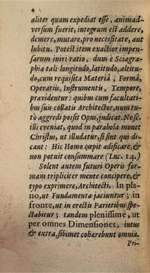 aliter quam expediat esse, animad-
versum fuerit, integrum est addere,
demere, mutare, pro necessitate, aut
lubitu. Potest item exactius impen-
sarum iniri ratio, dum è Sciagra-
phia tali longitudo, latitudo, altitu-
do, cum requisitâ Materiâ; Formâ,
Operatio, Instrumentis, Tempore,
prævidentur: quibus cum facultati-
bus suis collatis Architectus, num tu-
tò aggredi possit Opus, judicat. Ne si-
lli eveniat, quod in parabola monet
Christus, ut illudatur, sibi qui di-
cant: Hic Homo cœpit ædificare, &
non potuit consummare (Luc. 14.)
Solent autem futuri Operis for-
mam tripliciter mente concipere, &
typo exprimere, Architecti. In pla-
no, ut Fundamenta jaciuntur; in
fronte, ut in erectis Parietibus spe-
ctabitur; tandem plenissimè, ut
per omnes Dimensiones, intus
& extra, sibimet cohærebunt omnia.
Pri-